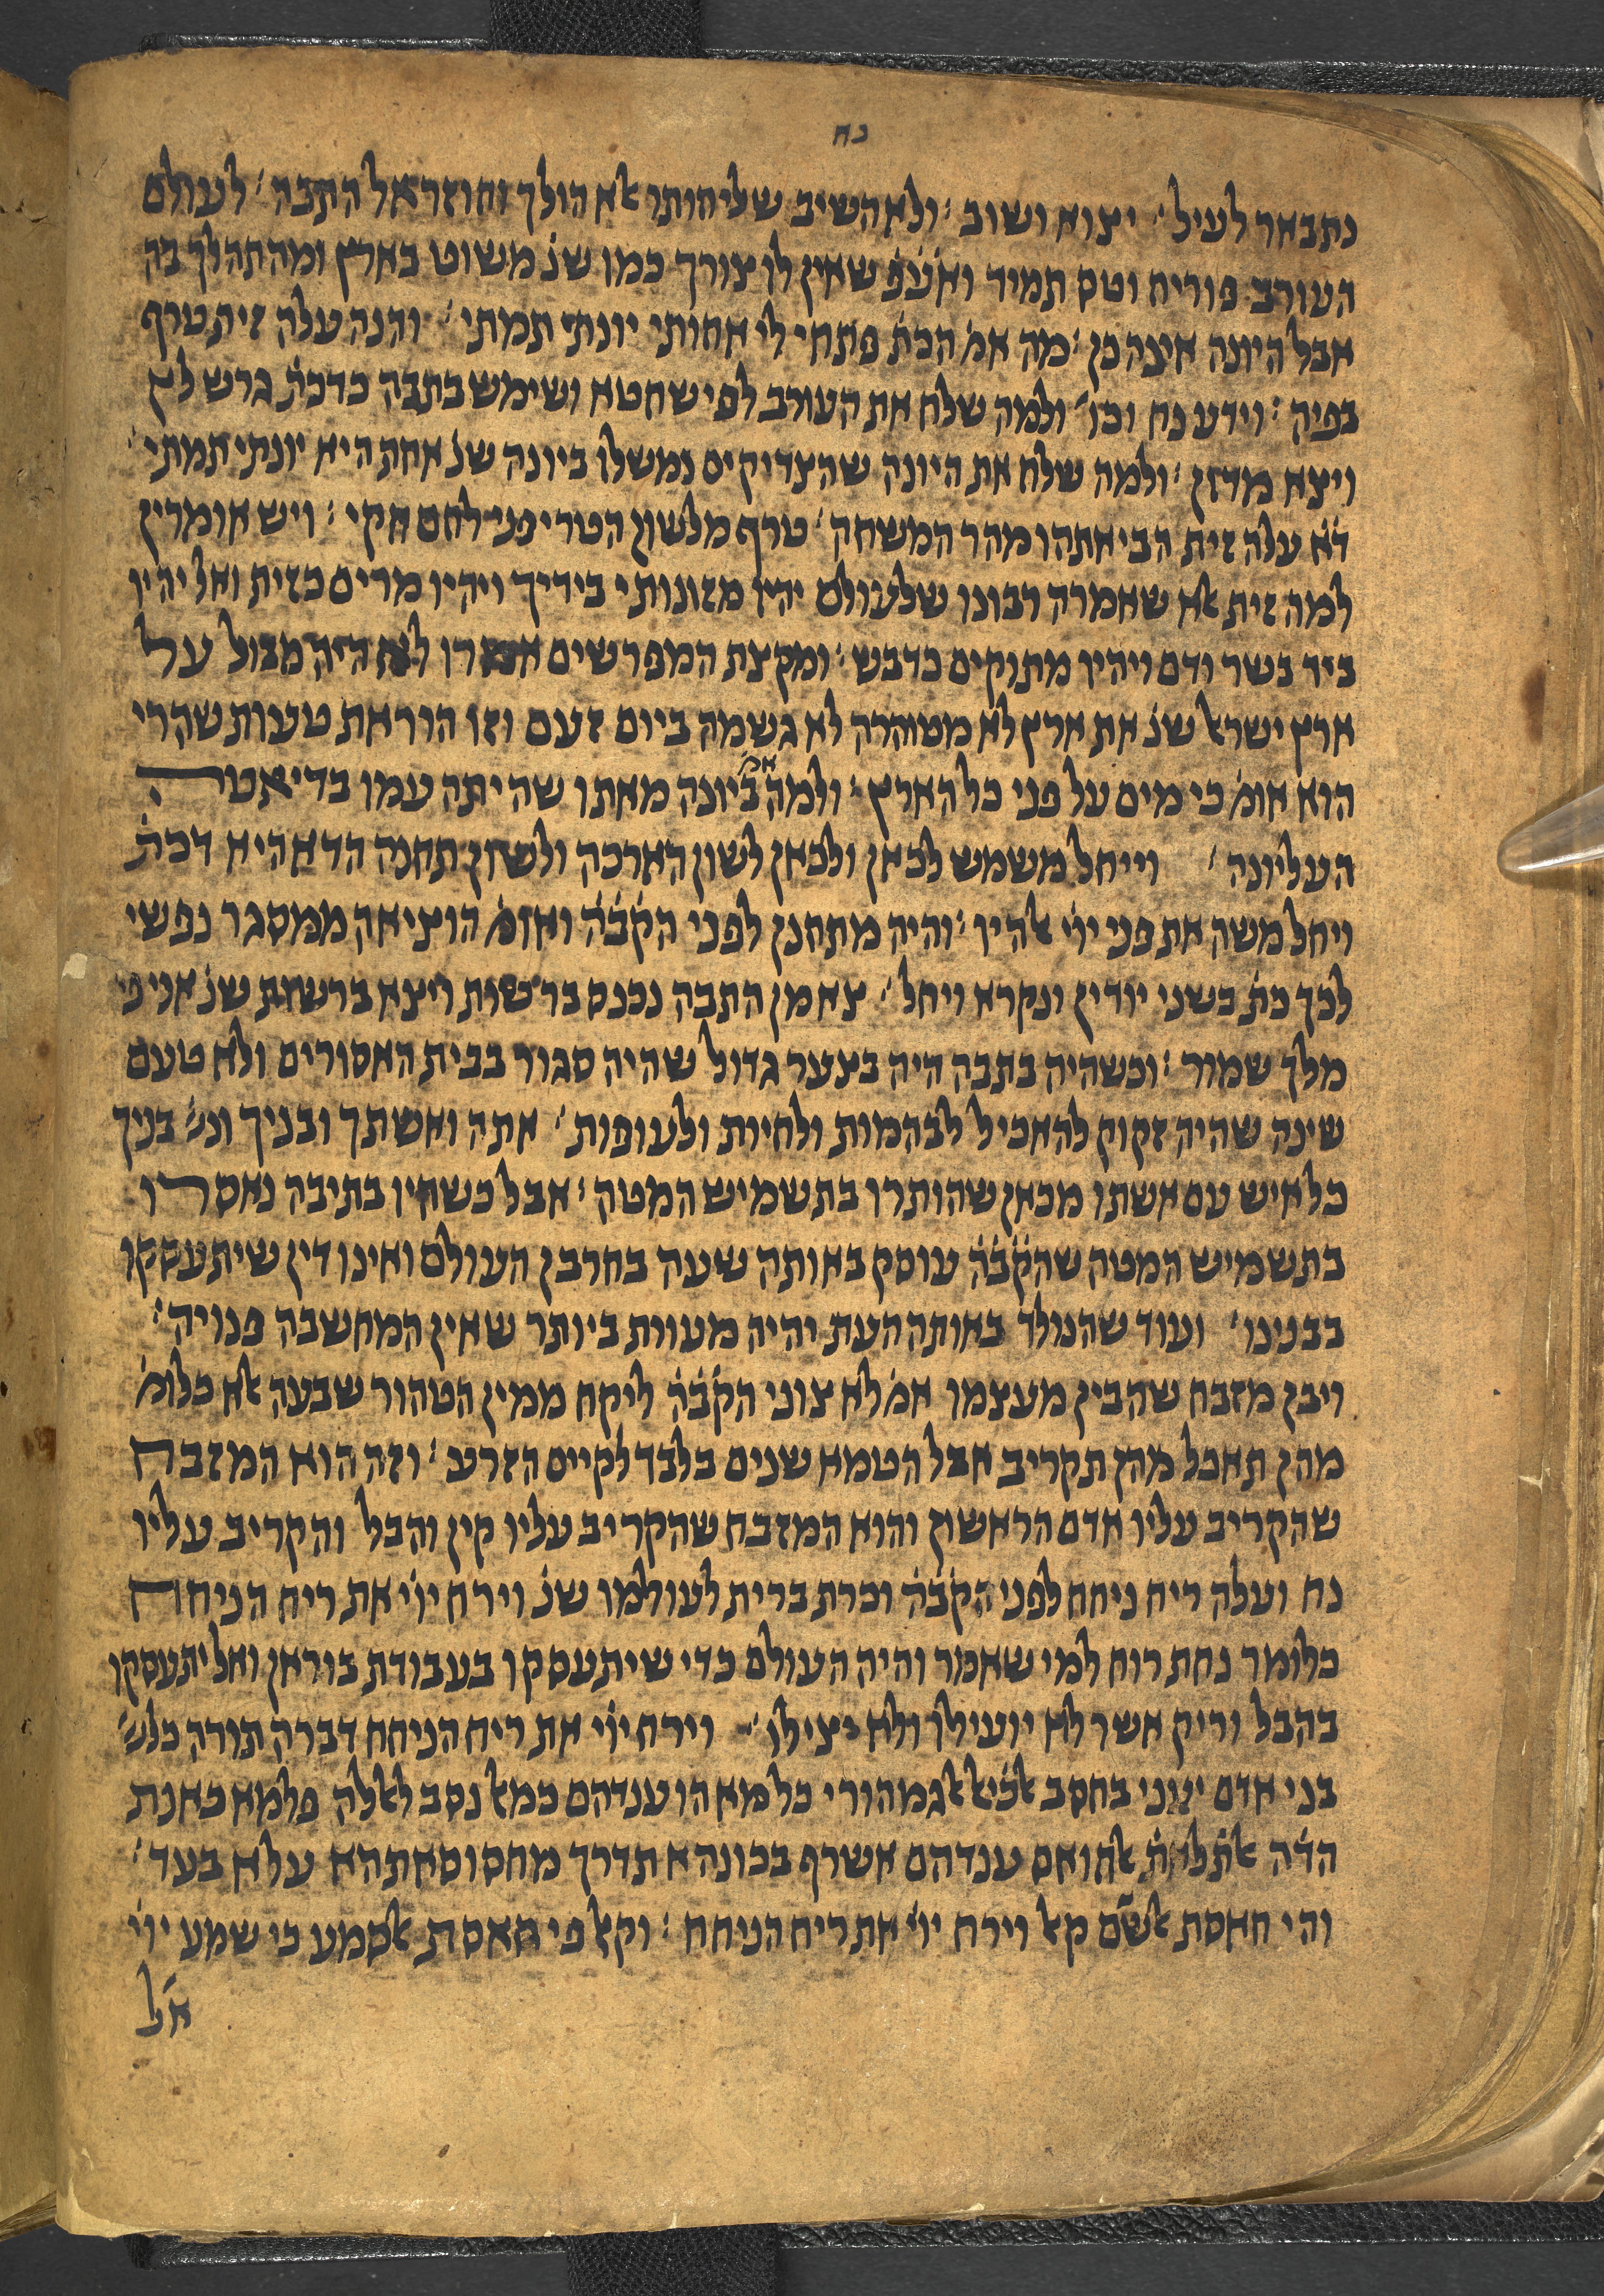 נח
נתבאר לעיל׳ יצוא ושוב : ולא השיב שליחותו אלא הולך וחוזר אל התבה׳ לעולם
העורב פוריח וטס תמיד ואע֗פ֗ שאין לו צורך כמו שנ֗ משוט בארץ ומהתהלך בה
אבל היונה אינה כן : מה אמ֗ הכת֗ פתחי לי אחותי יונתי תמתי׳ והנה עלה זית טרף
בפיה : וידע נח וכו׳ ולמה שלח את העורב לפי שחטא ושימש בתבה כדכת֗ גרש לץ
ויצא מדון : ולמה שלח את היונה שהצדיקים נמשלו ביונה שנ֗ אחת היא יונתי תמתי׳
ד֗א֗ עלה זית הביאתהו מהר המשחה׳ טרף מלשון הטריפני לחם חקי : ויש אומרין
למה זית אלא שאמרה רבונו שלעולם יהיו מזונותי בידיך ויהיו מרים כזית ואל יהיו
ביד בשר ודם ויהיו מתוקים כדבש : ומקצת המפרשים אמרו לא היה מבול על
ארץ ישראל שנ֗ את ארץ לא מטוהרה לא גשמה ביום זעם וזו הוראת טעות שהרי
הוא אומ֗ כי מים על פני כל הארץ : ולמה אמ֗ ביונה מאתו שהיתה עמו בדיאטה
העליונה׳ וייחל משמש לכאן ולכאן לשון הארכה ולשון תחנה הדא היא דכת֗
ויחל משה את פני ייי אלהיו : והיה מתחנן לפני הק֗ב֗ה֗ ואומ֗ הוציאה ממסגר נפשי
לכך כת֗ בשני יודין ונקרא ויחל׳ צא מן התבה נכנס ברשות ויצא ברשות שנ֗ אני פי
מלך שמור : וכשהיה בתבה היה בצער גדול שהיה סגור בבית האסורים ולא טעם
שינה שהיה זקוק להאכיל לבהמות ולחיות ולעופות׳ אתה ואשתך ובניך ונש֗י֗ בניך
כל איש עם אשתו מכאן שהותרו בתשמיש המטה : אבל כשהיו בתיבה נאסרו
בתשמיש המטה שהק֗ב֗ה֗ עוסק באותה שעה בחרבן העולם ואינו דין שיתעסקו
בבנינו׳ ועוד שהנולד באותה העת יהיה מעוות ביותר שאין המחשבה פנויה :
ויבן מזבח שהבין מעצמו אמ֗ לא צוני הק֗ב֗ה֗ ליקח ממין הטהור שבעה אלא כלומ֗
מהן תאכל מהן תקריב אבל הטמא שנים בלבד לקיים הזרע : וזה הוא המזבח
שהקריב עליו אדם הראשון והוא המזבח שהקריב עליו קין והבל והקריב עליו
נח ועלה ריח ניחח לפני הק֗ב֗ה֗ וכרת ברית לעולמו שנ֗ וירח ייי את ריח הניחח
כלומר נחת רוח למי שאמר והיה העולם כדי שיתעסקו בעבודת בוראן ואל יתעסקו
בהבל וריק אשר לא יועילו ולא יצילו׳ וירח ייי את ריח הניחח דברה תורה כלש֗
בני אדם יעני בחסב אלגמהורי כל מא הו ענדהם כמאל נסב לאללה פלמא כאנת
הד֗ה אלת֗לאת֗ אלחואס ענדהם אשרף בכונהא תדרך מחסוסאתהא עלא בעד׳
והי חאסת אלשם קאל וירח ייי את ריח הניחח : וקאל פי חאסת אלסמע כי שמע ייי
אל